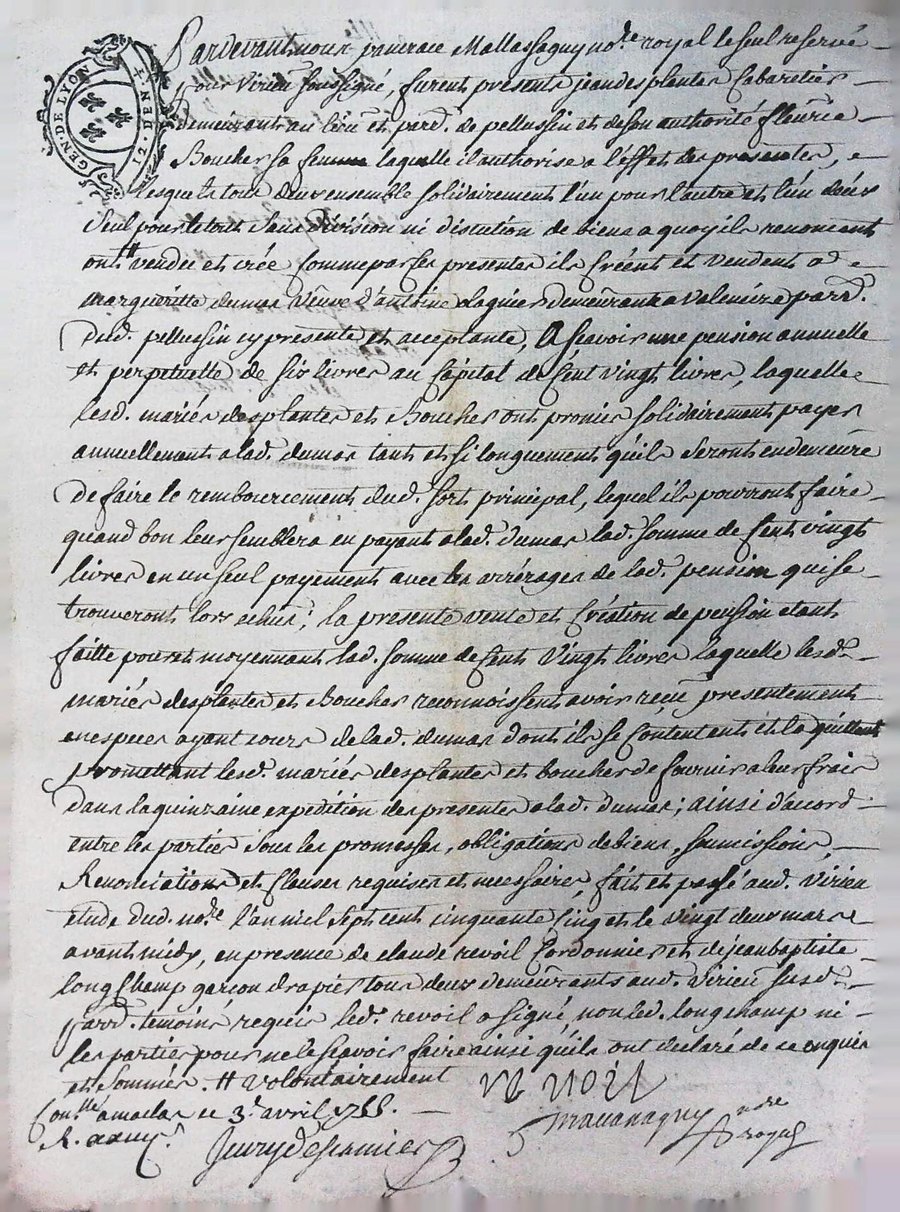 GEN. DE LYON
I. DENI.
Pardevant nous pancrace Mallassagny no.re royal le seul reservé
pour Virieu soussigné, furent presents jean desplantes Cabaretier
demeurant au lieu et parr. de pellussin et de son authorité fleurie
Boucher sa femme laquelle il authorise a l'effet des presentes,
lesquels tous deux ensemble solidairement l'un pour l'autre et l'un d'eux
seul pour le tout sans division ni discution de biens a quoy ils renoncent
ont # vendu et créé comme par ces presentes ils créent et vendent a
margueritte dumas veuve d'antoine demeurant a valencize parr.
dud. pellussin cy presente et acceptante, A sçavoir une pension annuelle
et perpetuelle de six livres au Capital de Cent vingt livres, laquelle
lesd. mariés desplantes et Boucher ont promis solidairement payer
annuellement a lad. dumas tant et si longuement qu'ils seront en demeure
de faire le remboursement dud. sort principal, lequel ils pourront faire
quand bon leur semblera en payant a lad. dumas lad. somme de Cent vingt
livres en un seul payement avec les arrérages de lad. pension qui se
trouveront lors echus; la presente vente et Création de pension etant
faitte pour et moyennant lad. somme de Cent Vingt livres laquelle lesd.
mariés desplantes et Boucher reconnoissent avoir reçu presentement
en especes ayant cours de lad. dumas dont ils se Contentent et la quittent
promettant lesd. mariés desplantes et boucher de fournir a leur frais
dans la quinzaine expedition des presentes a lad. dumas; ainsi d'accord
entre les parties sous les promesses, obligations de biens, soumissions,
Renonciations et Clauses requises et necessaires, fait et passé aud. Virieu
etude dud. no.re l'an mil sept cent cinquante Cinq et le vingt deux mars
avant midy, en presence de claude revoil Cordonnier et de jean baptiste
longchamp garçon drapier tous deux demeurants aud. Virieu susd.
parr. temoins requis led. revoil a signé, non led. longchamp ni
les parties pour ne le sçavoir faire ainsi qu'ils ont declaré de ce enquis
et sommés. # volontairement
revoil
Con.llé a maclas ce 3.e avril 1755.
no.re royal